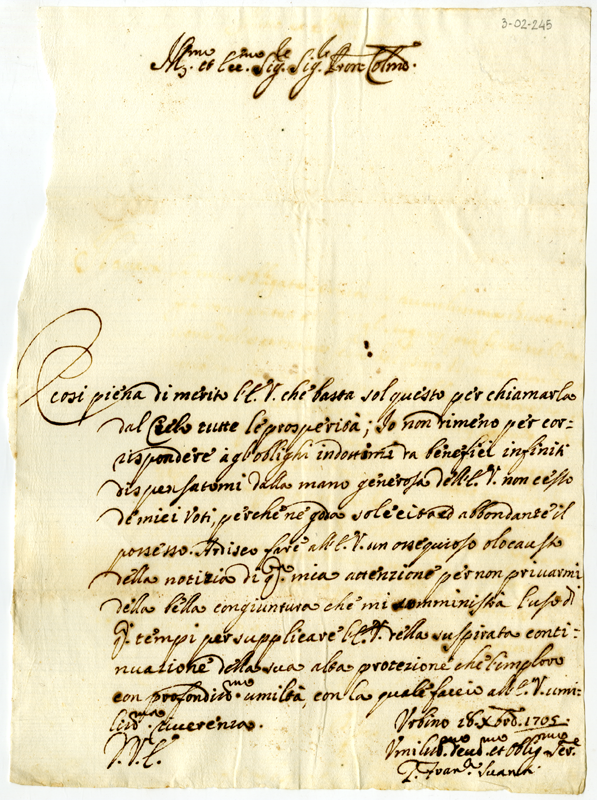 3-02-245
Ill.mo et Ecc.mo Sig.le Sig.le Pron Colmo.
È cosi piena di merito l'E. V. che basta sol questo per chiamarla
dal Cielo tutte le prosperità; Io non dimeno per cor-
rispondere à gl'oblighi indottimi da benefici infiniti
dispensatomi dalla mano generosa dell'E. V. non cesso
de miei Voti, perche ne goda sole cita ed abbondante il
possesso. Ardisco fare all'E. V. un ossequioso olocausto
della notizia di q.ta mia attenzione per non privarmi
della bella congiuntura che mi somministra l'uso di
q.i tempi per supplicare l'E. V. della suspirata conti-
nuazione della sua alta protezione che l'imploro
con profondiss.ma umiltà, con la quale faccio all'E. V. umi-
liss.ma riverenza.
Urbino 18. Xbre. 1705
V. E.
Umiliss.mo Devo.mo et Oblig.mo Ser.e
Fran.co